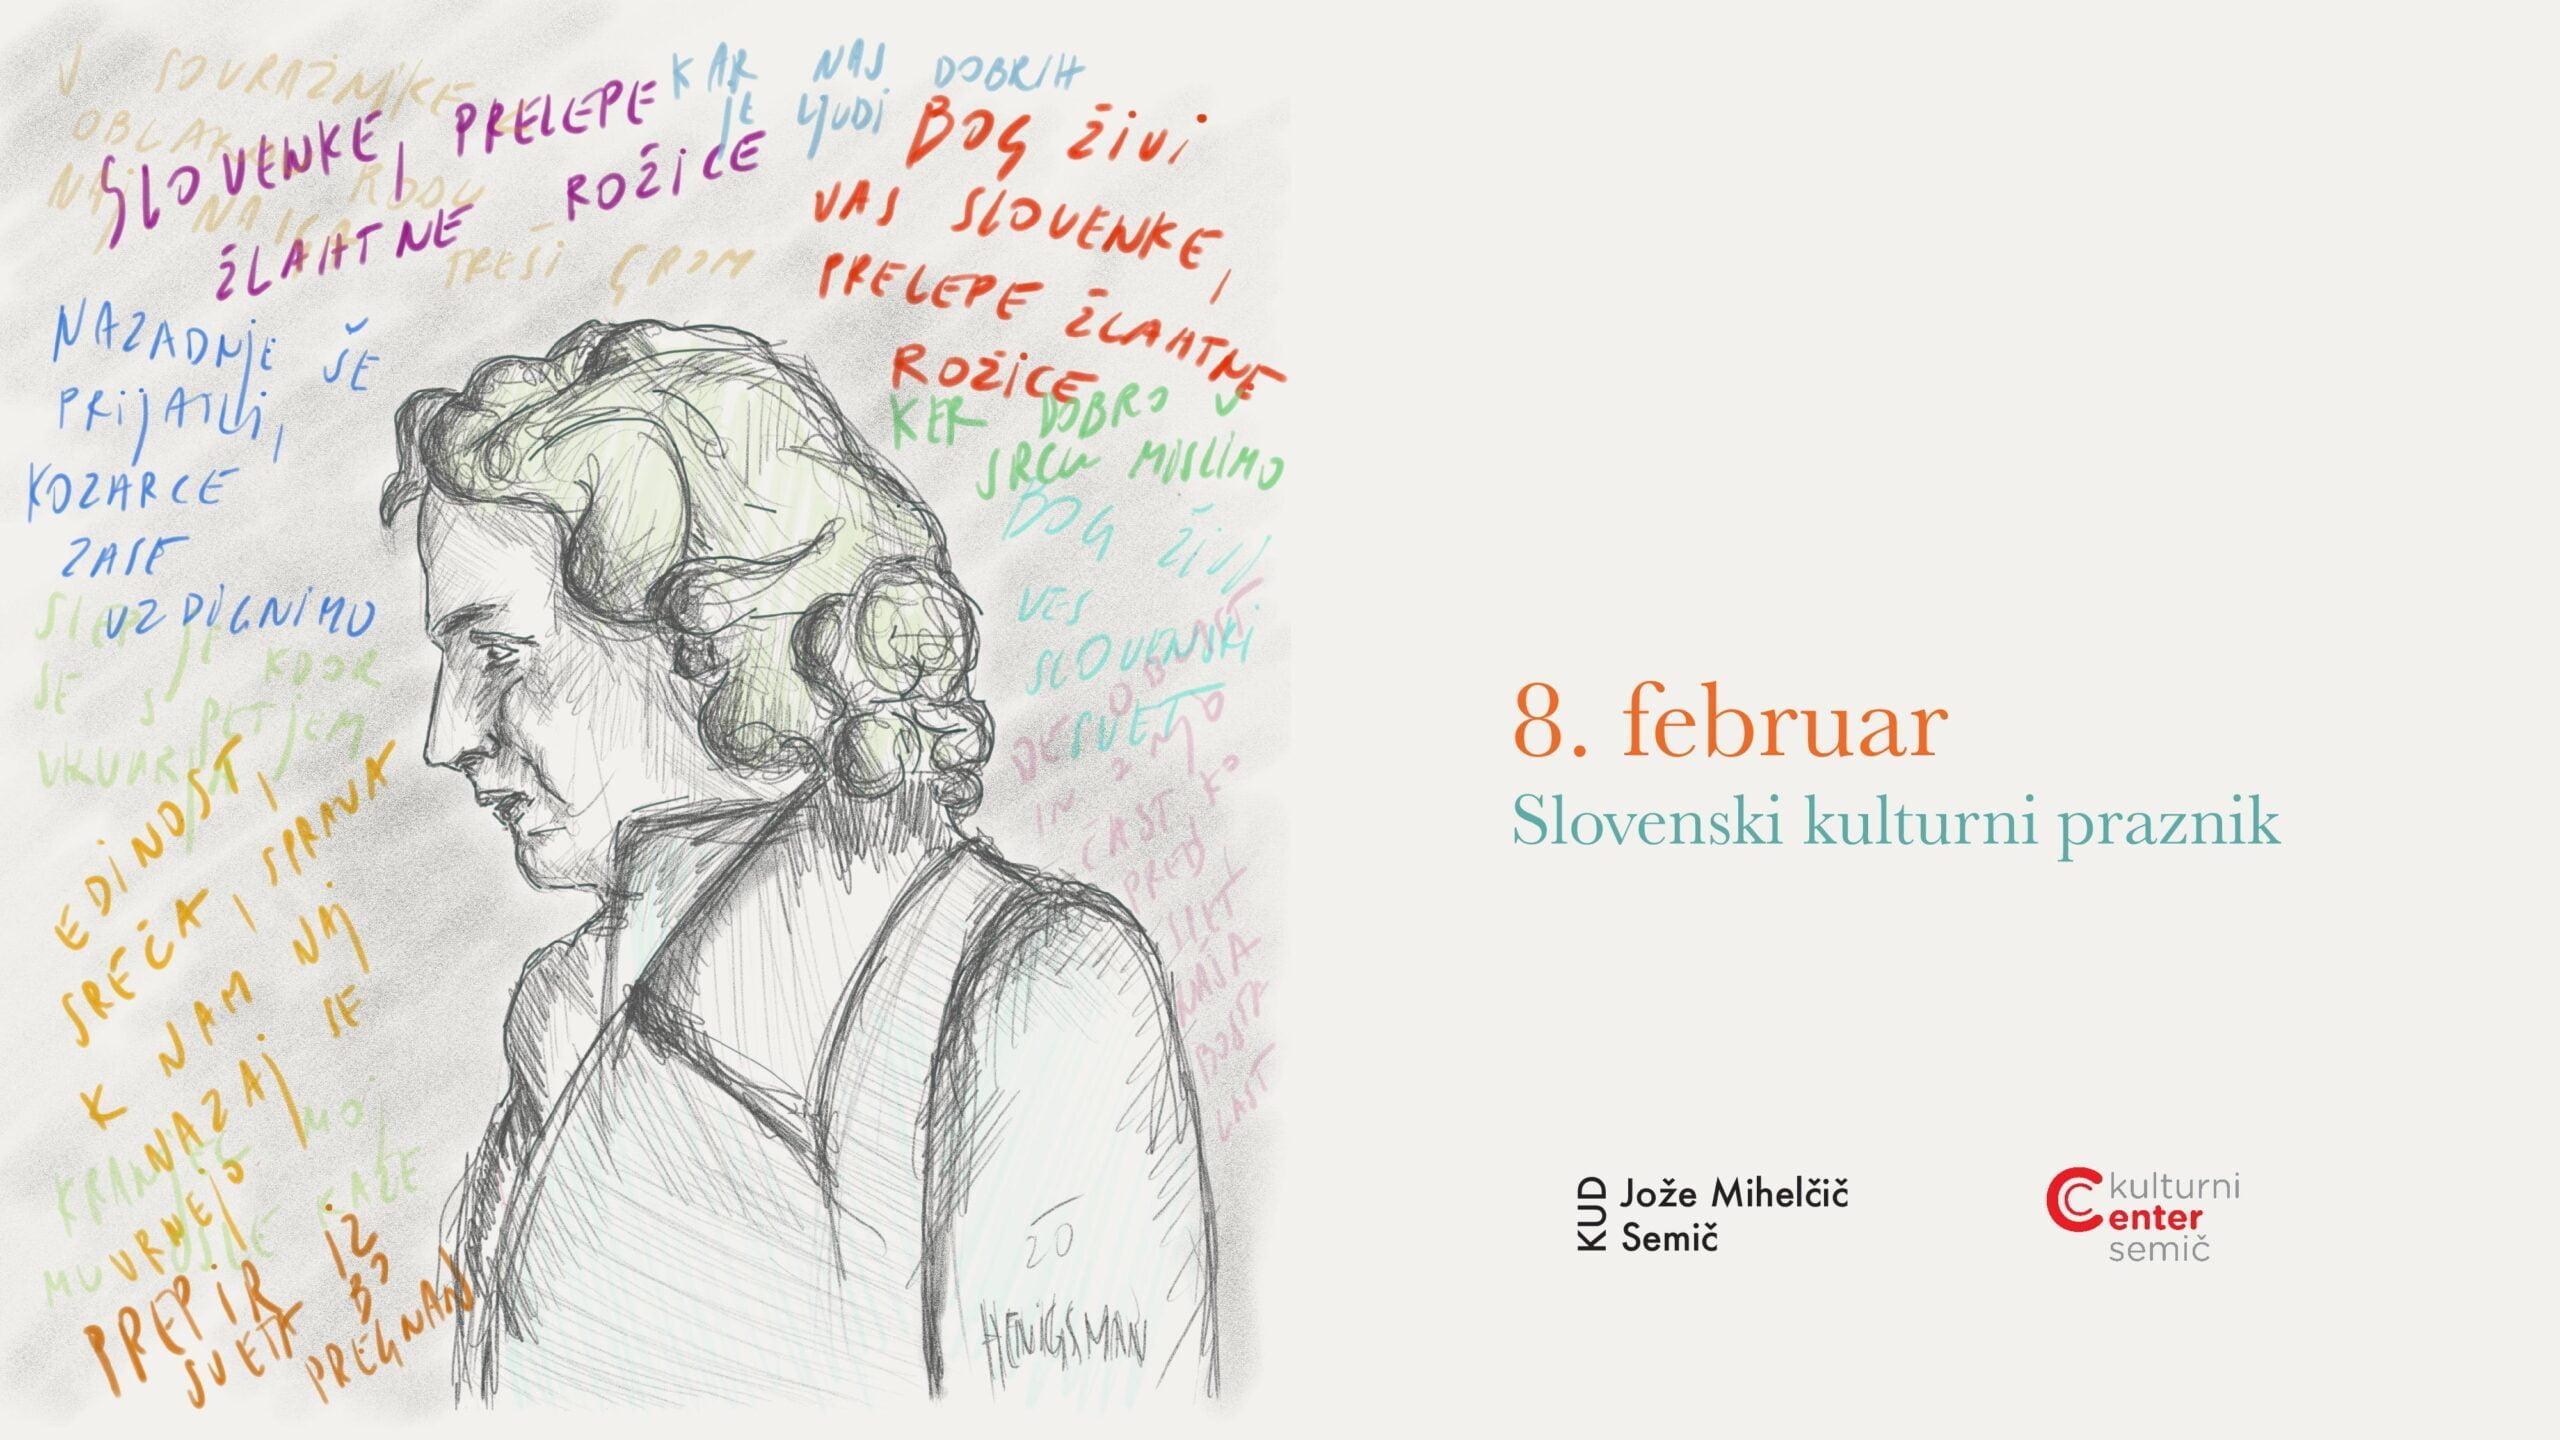 V SOVRAŽNIKE
OBLAKOV
SLOVENKE, PRELEPE
ŽLAHTNE ROŽICE
TREŠI GROM
KAR NAS DOBRIH
JE LJUDI
BOG ŽIVI
VAS SLOVENKE,
PRELEPE ŽLAHTNE
ROŽICE
KER DOBRO V
SRCU MISLIMO
BOG ŽIVI
VES
SLOVENSKI
SVET
NAZADNJE ŠE
PRIJATLJI,
KOZARCE
ZASE
VZDIGNIMO
SLEP JE
KDOR
SE S PETJEM
UKVARJA
EDINOST,
SREČA, SPRAVA
K NAM NAJ
NAZAJ SE
VRNEJO
KRANJEC MOJ
MU OSLE KAŽE
PREPIR IZ
SVETA BO
PREGNAN
IN
ČAST
PRED
NAŠA
LAST
20
HENIGSMAN
8. februar
Slovenski kulturni praznik
KUD Jože Mihelčič
Semič
kulturni
Center
semič